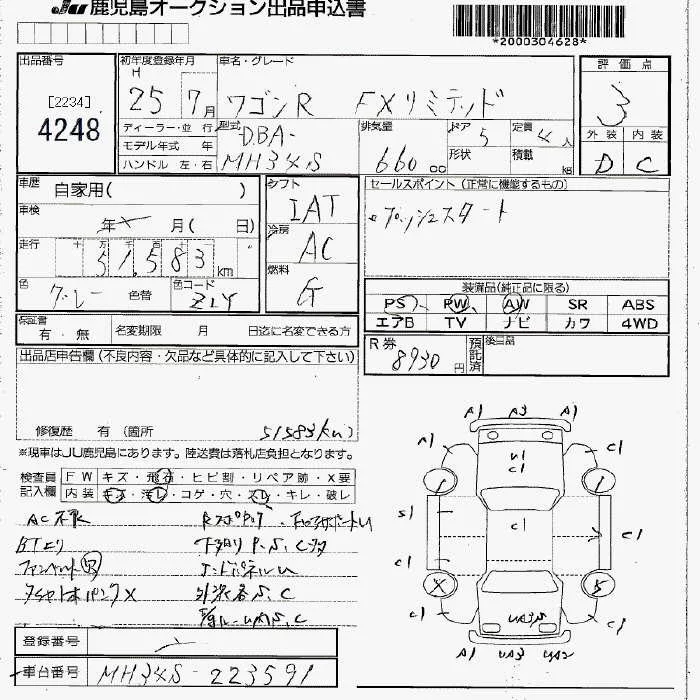 JU 鹿児島オークション出品申込書
*2000304628*
出品番号
[2234]
4248
初年度登録年月
H
25 7月
ディーラー・並 行
モデル年式 年
ハンドル 左・右
車名・グレード
ワゴンR FXリミテッド
型式
DBA-
MH34S
排気量
660 cc
ドア 5
形状
定員 4 人
積載 kg
評 価 点
3
外 装 内 装
D C
車歴 自家用( )
車検
年 月( 日)
走行 十 万 千 百 十
51,583 km
色 グレー 色替
色コード
ZLY
シフト
IAT
冷房
AC
燃料
G
セールスポイント (正常に機能するもの)
プッシュスタート
装備品(純正品に限る)
PS PW AW SR ABS
エアB TV ナビ カワ 4WD
保証書
有・無
名変期限 月 日迄に名変できる方
R券
8930 円
預託済
後日品
出品店申告欄 (不良内容・欠品など具体的に記入して下さい)
修復歴 有 (箇所
51583km)
※現車はJU鹿児島にあります。陸送費は落札店負担となります。
検査員
記入欄
FW キズ・飛石・ヒビ割・リペア跡・X要
内装 キズ・汚レ・コゲ・穴・スレ・キレ・破レ
登録番号
車台番号 MH34S-223591
A1 A3 A1
A1 U1 C1 C1
S1 C1 C1
C1 C1
X
C1 UA3S C1
A1 UA3 UA2